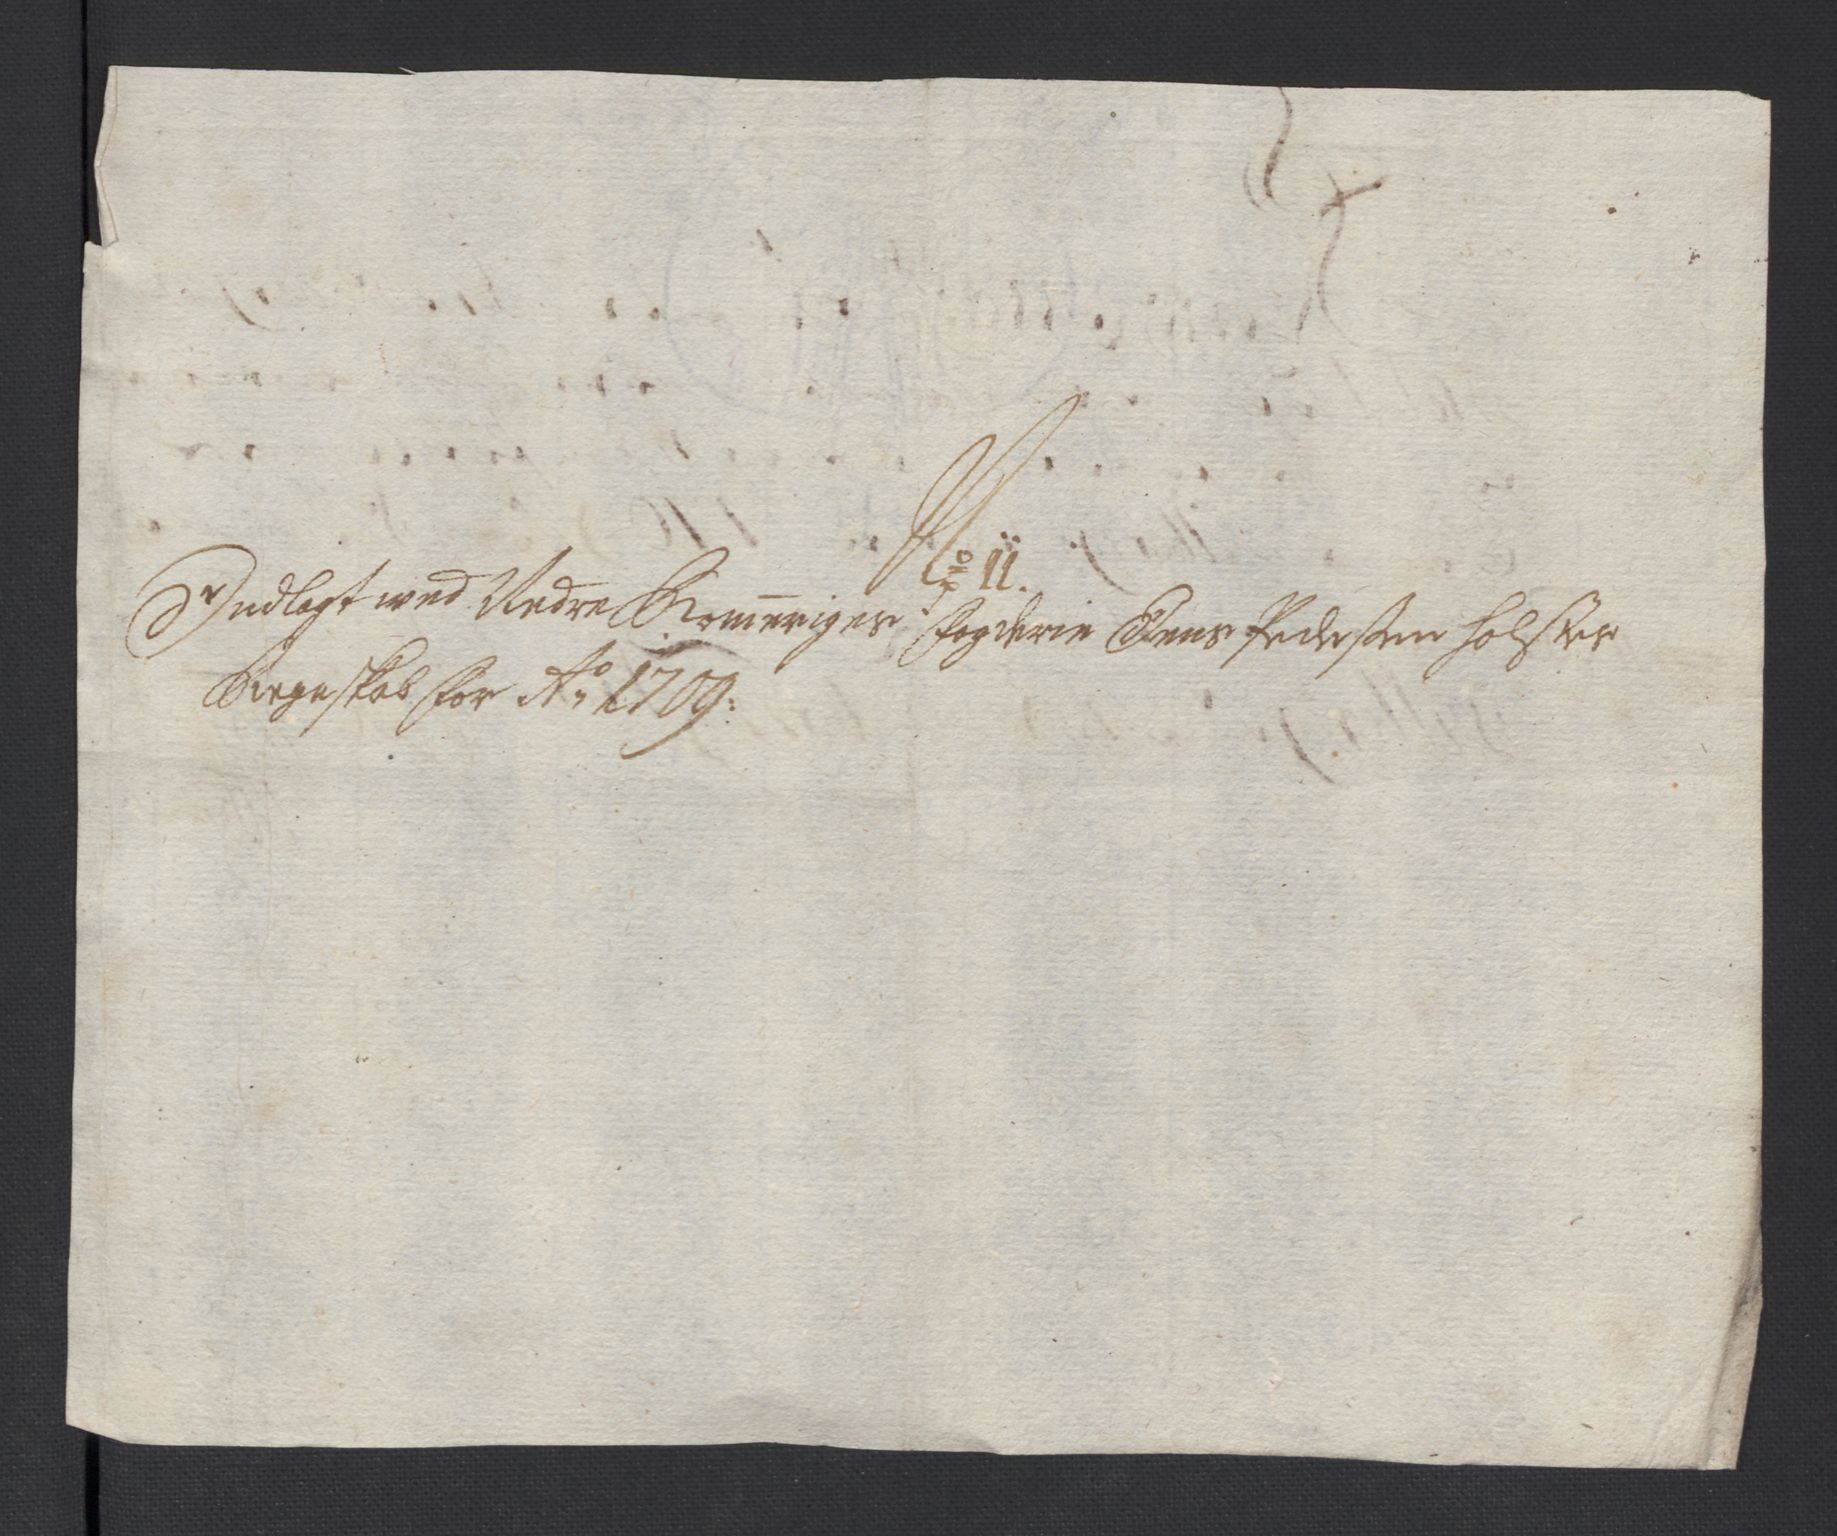 No 11.
Indlagt wed Nedre Romeriges fogderie Jens Pedersen Holsts
Regnskab for Ao 1709: